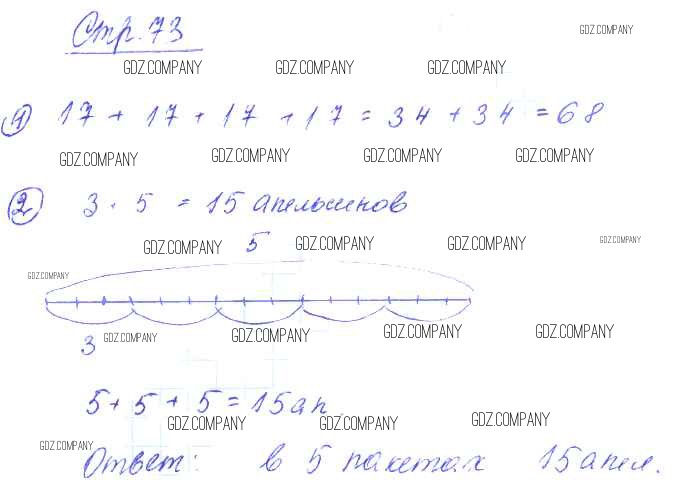 Стр. 73
GDZ.COMPANY
GDZ.COMPANY GDZ.COMPANY GDZ.COMPANY
1 17 + 17 + 17 + 17 = 34 + 34 = 68
GDZ.COMPANY GDZ.COMPANY GDZ.COMPANY GDZ.COMPANY
2 3 · 5 = 15 апельсинов
GDZ.COMPANY 5 GDZ.COMPANY GDZ.COMPANY GDZ.COMPANY
GDZ.COMPANY
3 GDZ.COMPANY GDZ.COMPANY GDZ.COMPANY GDZ.COMPANY
5 + 5 + 5 = 15 ап
GDZ.COMPANY GDZ.COMPANY GDZ.COMPANY
GDZ.COMPANY
Ответ: в 5 пакетах 15 апел.